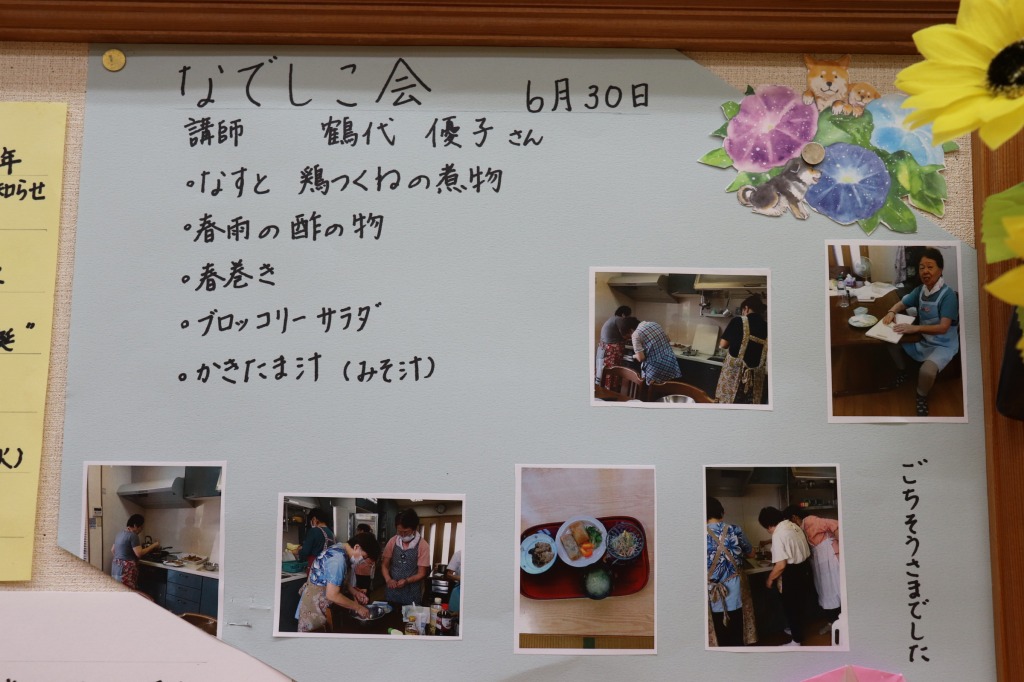 なでしこ会 6月30日
講師 鶴代 優子さん
・なすと 鶏つくねの煮物
・春雨の酢の物
・春巻き
・ブロッコリーサラダ
・かきたま汁 (みそ汁)
ごちそうさまでした
年
知らせ
火)